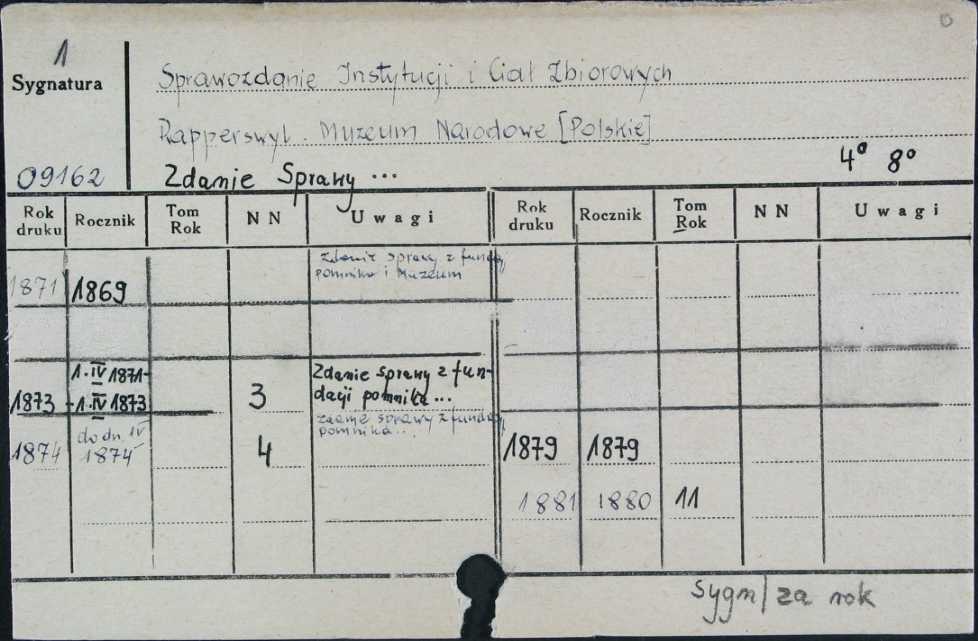 1
Sygnatura
Sprawozdanie Instytucji i Ciał Zbiorowych
Rapperswyl. Muzeum Narodowe [Polskie]
4° 8°
09162 Zdanie Sprawy ...
Rok druku Rocznik Tom Rok N N Uwagi Rok druku Rocznik Tom Rok N N Uwagi
zdanie sprawy z fundacj.
pomnika i Muzeum
1871 1869
1.IV 1871- Zdanie sprawy z fun-
1873 -1.IV 1873 3 dacji pomnika ...
zdanie sprawy z fundacj,
do dn. IV pomnika...
1874 1874 4 1879 1879
1881 1880 11
Sygn/za rok